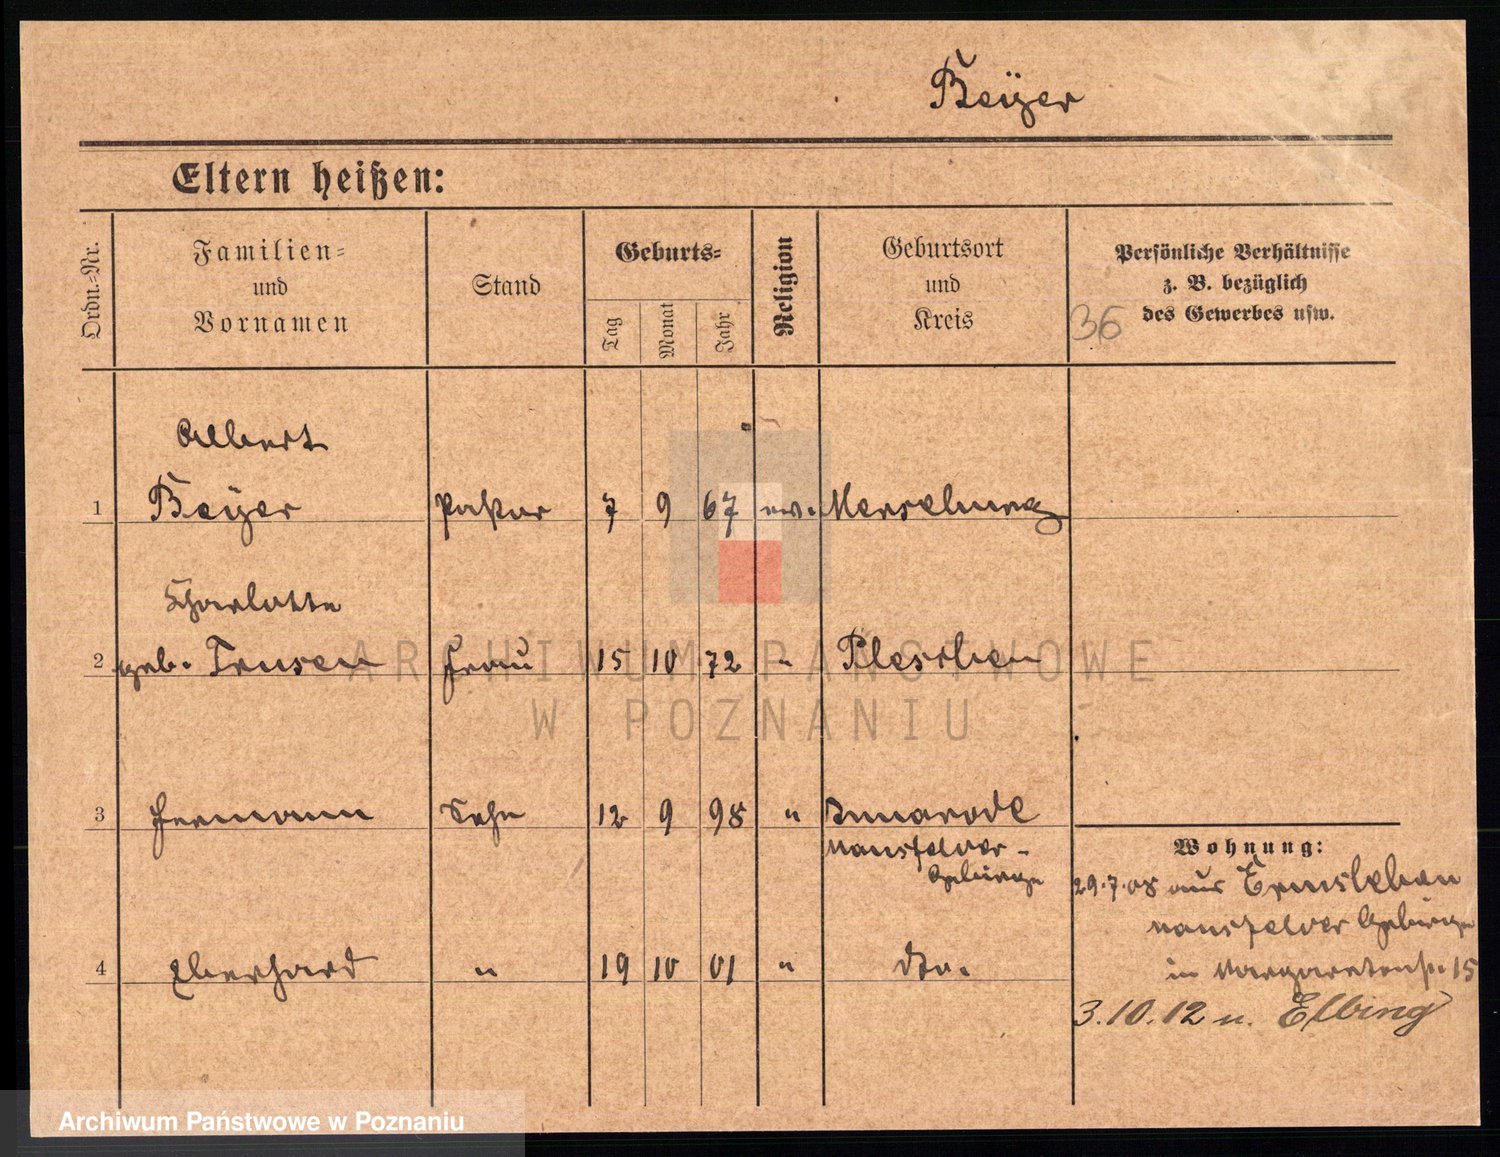 Beÿer
Eltern heißen:
Ordn.=Nr.
Familien=
und
Vornamen
Stand
Geburts=
Tag
Monat
Jahr
Religion
Geburtsort
und
Kreis
Persönliche Verhältnisse
z. B. bezüglich
des Gewerbes usw.
36
Albert
1 Beÿer Pastor 7 9 67 ev. Merseburg
Charlotte
2 geb. Trusen Frau 15 10 72 " Pleschen
3 Hermann Sohn 12 9 98 "
Mansfelder-
Gebirge
4 Eberhard " 19 10 01 " dto.
Wohnung:
29.7.08 aus Ermsleben
Mansfelder Gebirge
in Margaretenstr. 15
3.10.12 n. Elbing
ARCHIWUM PAŃSTWOWE
W POZNANIU
Archiwum Państwowe w Poznaniu